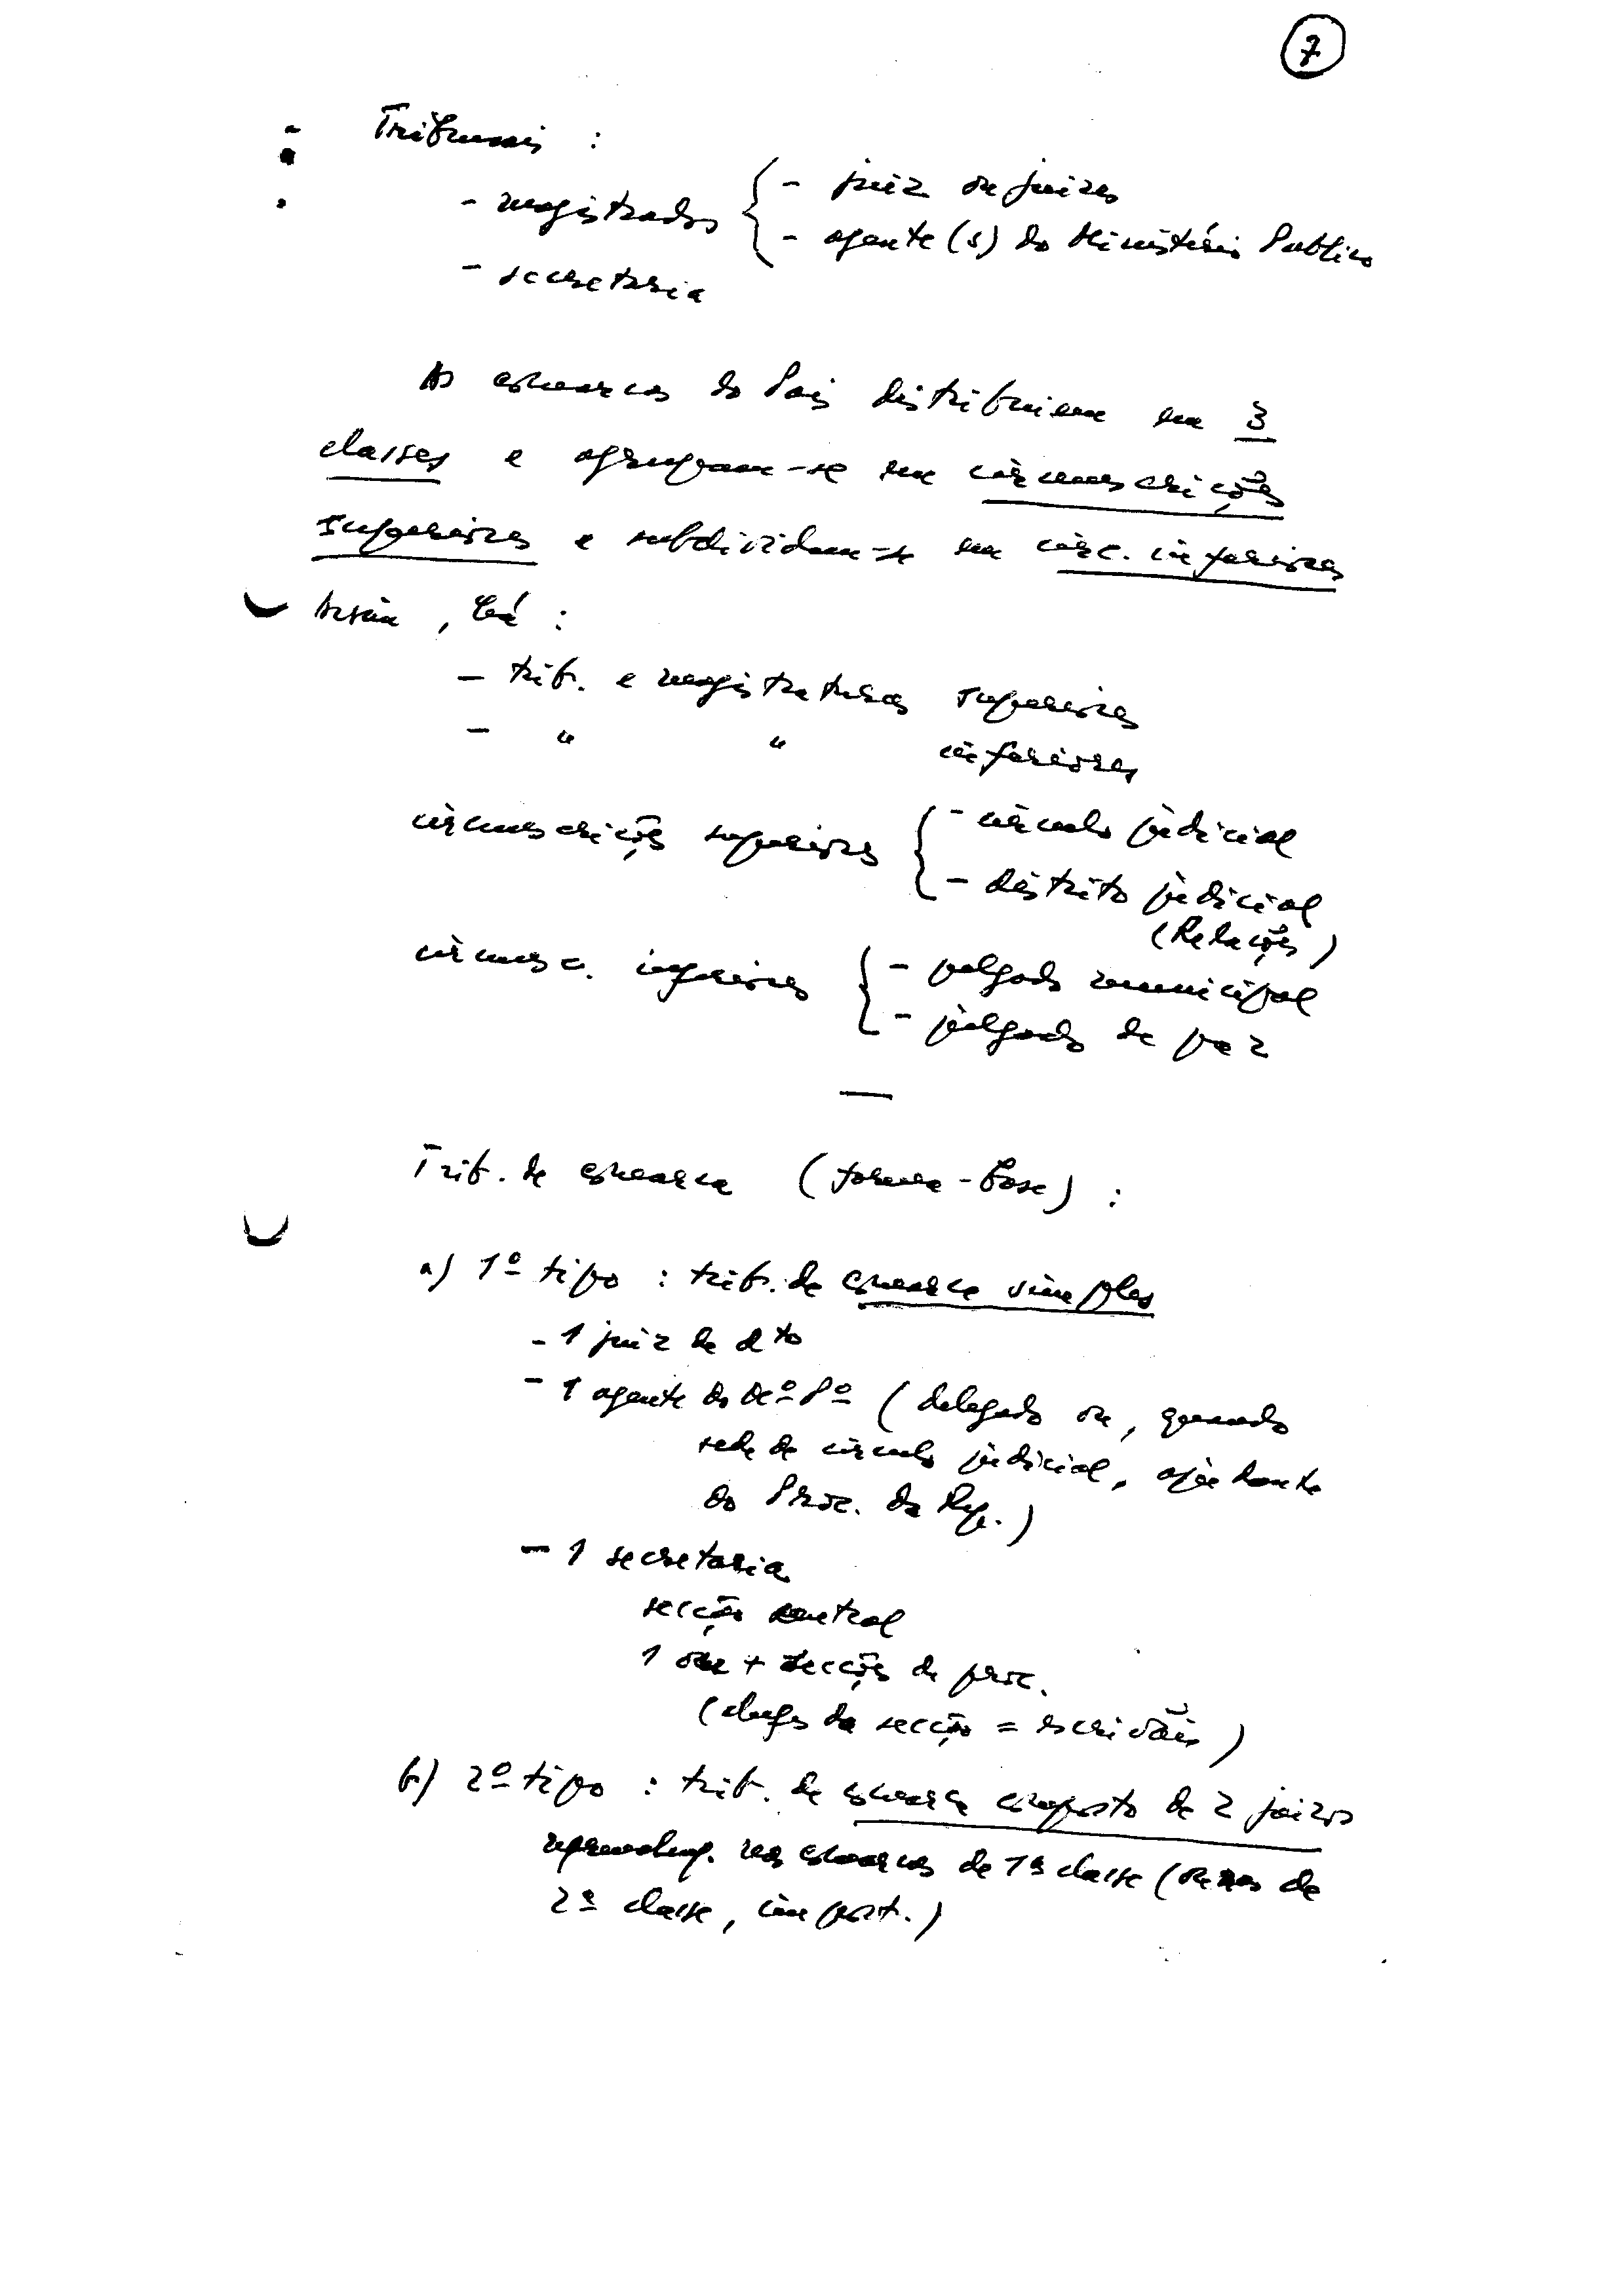 7
Tribunais :
- magistrados { - juiz ou juizes
- agente(s) do Ministério Publico
- secretaria
As comarcas do Pais distribuiem em 3
classes e agrupam-se em circunscrições
superiores e subdividem-se em circ. inferiores
Assim, há :
- trib. e magistraturas superiores
- " " inferiores
circunscrições superiores { - circulo judicial
- distrito judicial
(Relações)
circunsc. inferiores { - julgado municipal
- julgado de paz
Trib. de comarca (forma-base) :
a) 1º tipo : trib. de comarca simples
- 1 juiz de dto
- 1 agente do Mº Pº (delegado ou, quando
sede de circulo judicial, ajudante
do Proc. da Rep.)
- 1 secretaria
secção central
1 ou + secções de proc.
(chefes da secção = escrivães)
b) 2º tipo : trib. de comarca composto de 2 juizos
nas comarcas de 1ª classe (ou nas de
2ª classe, import.)